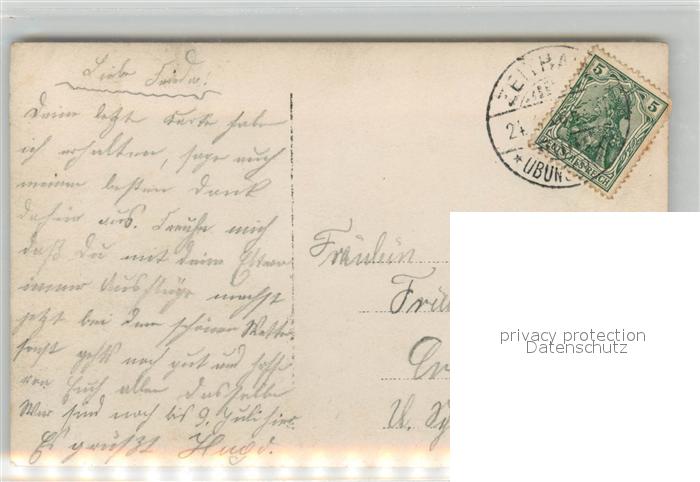 Liebe Frieda!
Deine letzt Karte habe
ich erhalten, sage auch
meinen besten Dank
dafür aus. Freuhe mich
daß Du mit deine Eltern
immer Ausflüge machst
jetzt bei dem schönen Wetter
sonst gehts noch gut und hoffe
von Euch allen dasselbe
Wir sind noch bis 9. Juli hier.
Es grüßt Hugo.
ZEITHA
24.
* ÜBUN
5 5
DEUTSCHES REICH
Fräulein
Frie
U.
privacy protection
Datenschutz